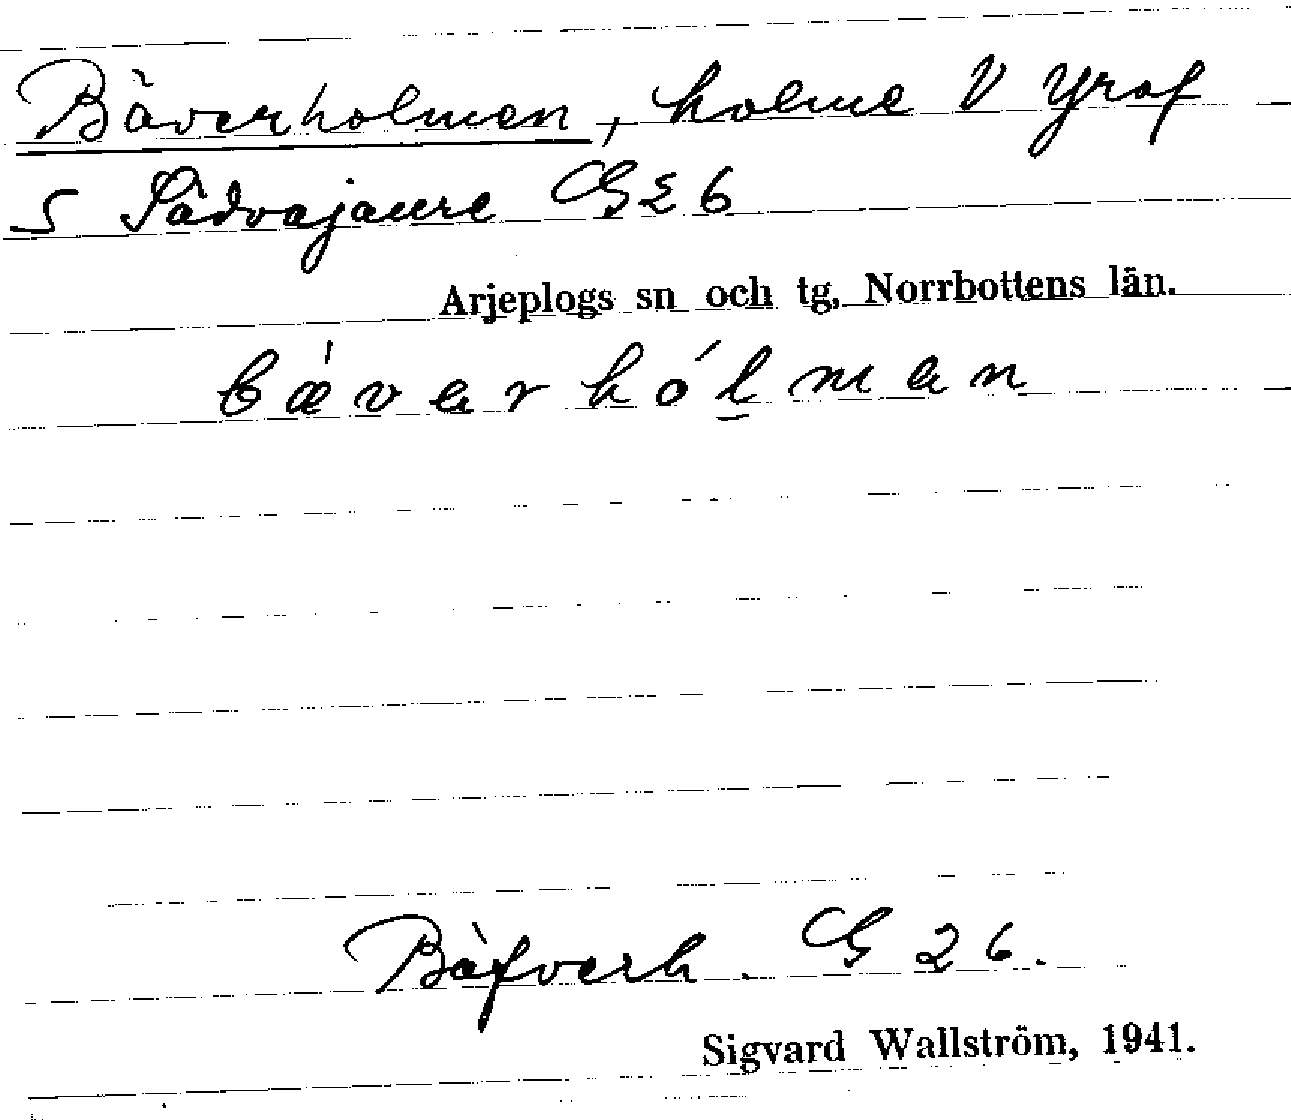 Bäverholmen, holme V Yraf
S Sädvajaure G 26
Arjeplogs sn och tg, Norrbottens län.
bǽvερhólmεn
Bäfverh. G 26.
Sigvard Wallström, 1941.